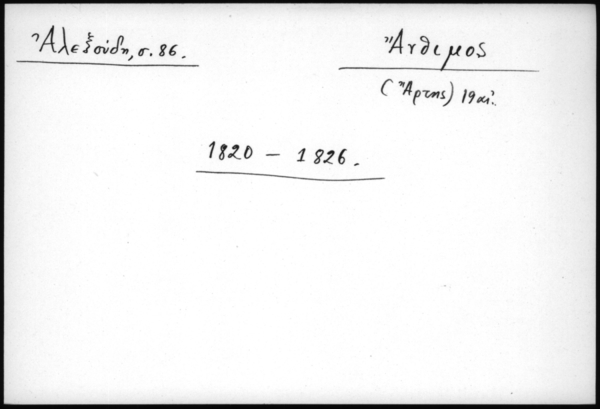 Ἀλεξούδη, σ. 86.
Ἄνθιμος
(Ἄρτης) 19 αἰ.
1820 – 1826.